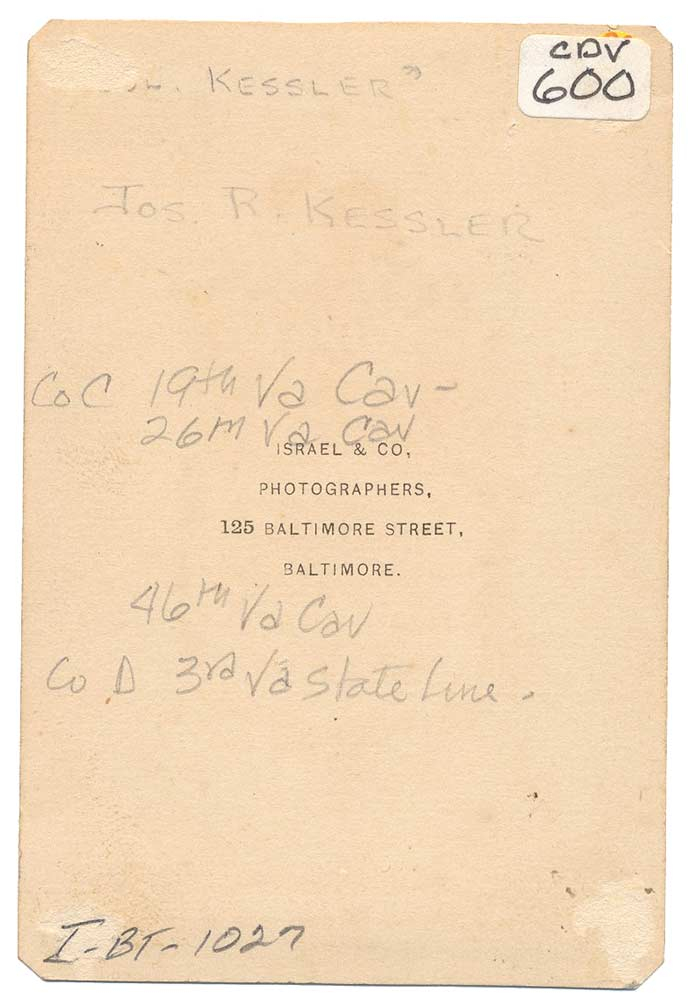 CDV
600
KESSLER"
Jos. R. KESSLER
Co C 19th Va Cav-
26th Va Cav
ISRAEL & CO,
PHOTOGRAPHERS,
125 BALTIMORE STREET,
BALTIMORE.
46th Va Cav
Co D 3rd Va State Line.
I-BT-1027